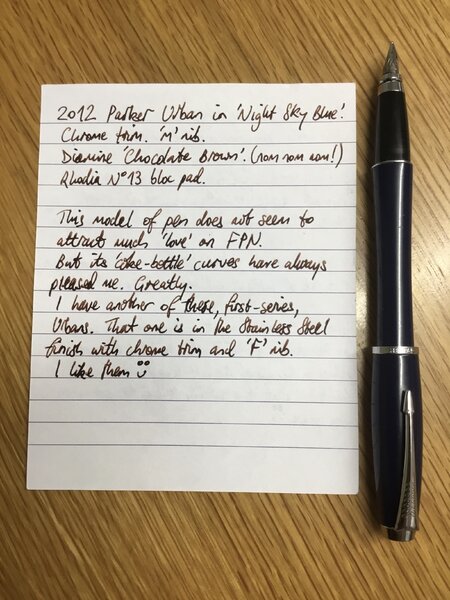 2012 Parker Urban in 'Night Sky Blue'.
Chrome trim. 'M' nib.
Diamine 'Chocolate Brown'. (nom nom nom!)
Rhodia Nº13 bloc pad.
This model of pen does not seem to
attract much 'love' on FPN.
But its 'coke-bottle' curves have always
pleased me. Greatly.
I have another of these, first-series,
Urbans. That one is in the Stainless Steel
finish with chrome trim and 'F' nib.
I like them ☺